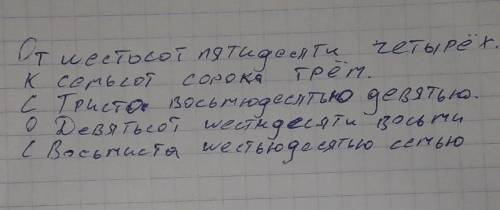 От шестосот пятидесяти четырёх.
К семьсот сорока трём.
С Триста восьмюдесятью девятью.
О Девятьсот шестидесяти восьми
С Восьмиста шестьюдесятью семью